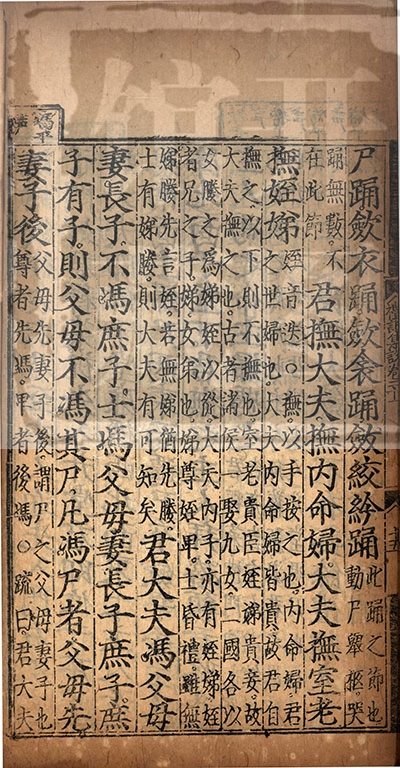 尸踊斂衣踊斂衾踊斂絞紟踊
此踊之節也
動尸舉柩哭
踊無數不
在此節
君撫大夫撫內命婦大夫撫室老
撫姪娣
姪音迭○撫以手按之也內命婦君
之世婦也大夫內命婦皆貴故君自
撫之以下則不撫也室老貴臣姪娣貴妾故
大夫撫之也古者諸侯一娶九女二國各以
女媵之為娣姪以從大夫內子亦有姪娣姪
者兄之子娣女弟也娣尊姪卑士昏禮雖無
娣媵先言姪若無娣猶先媵
士有娣媵則大夫有可知矣
君大夫馮父母
妻長子不馮庶子士馮父母妻長子庶子庶
子有子則父母不馮其尸凡馮尸者父母先
妻子後
父母先妻子後謂尸之父母妻子也
尊者先馮卑者後馮○疏曰君大夫
馮平